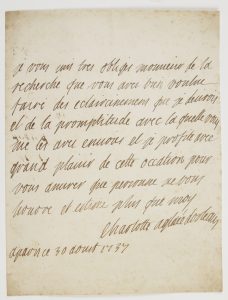 je vous suis tres obligee monsieur de la
recherche que vous avez bien voulue
faire des eclaircissemens que je
et de la promptitude avec la quelle vous
me les avez et je profite avec
grand plaisir de cette occation pour
vous assurer que personne ne vous
honore et estime plus que moy
Charlotte aglaé
a paris ce 30 aoust 1737